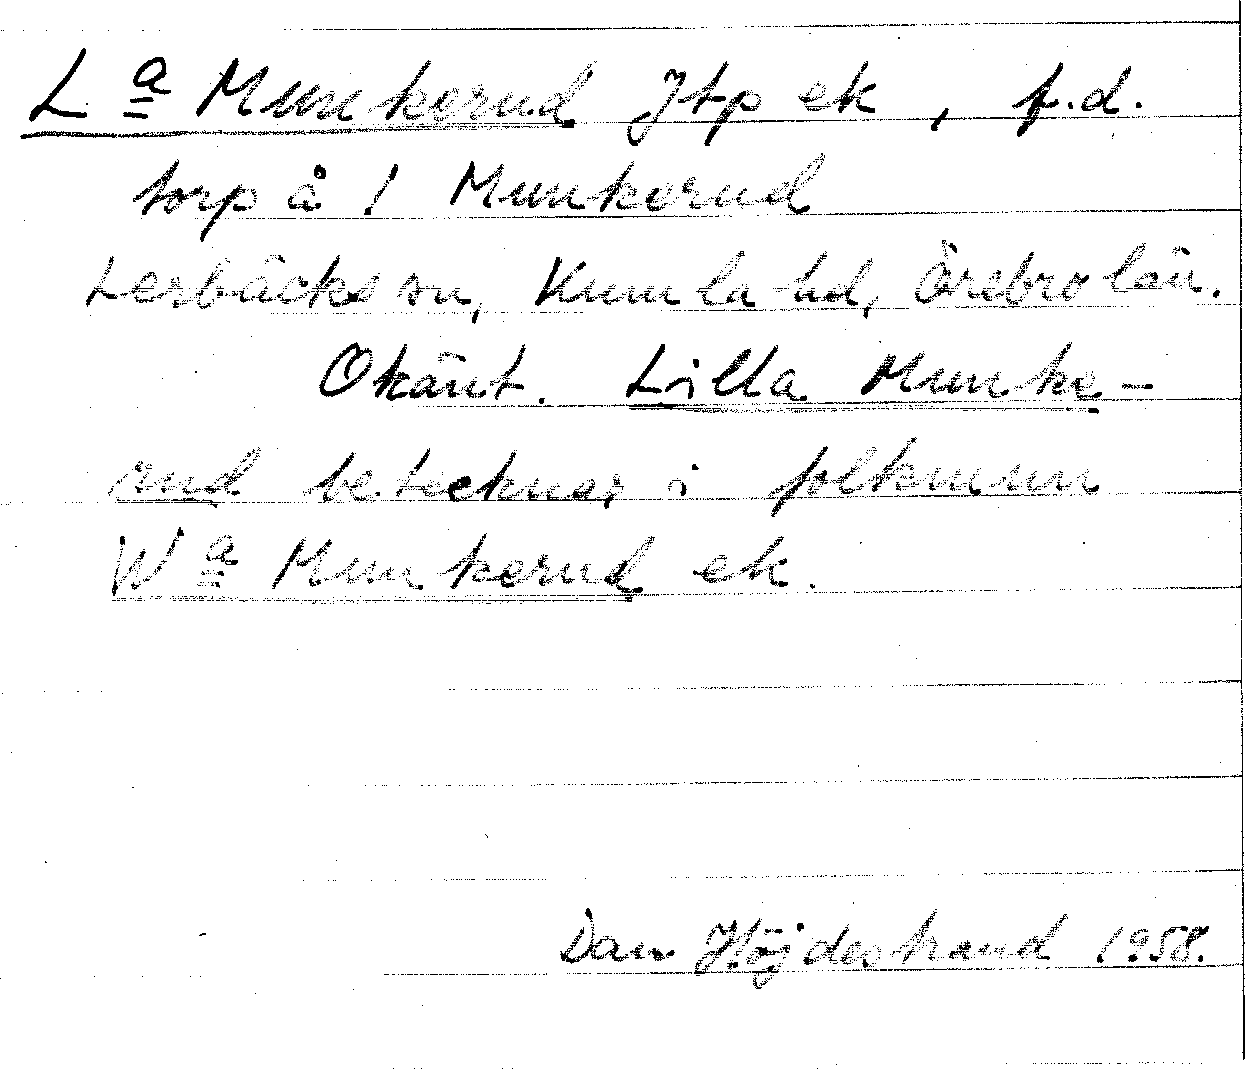 Lª Munkerud Jtp ek, f.d.
torp å 1 Munkerud
Lerbäcks sn, Kumla hd, Örebro län.
Okänt. Lilla Munke-
rud betecknar i folkmun
Wª Munkerud ek.
Dan Höjdestrand 1958.